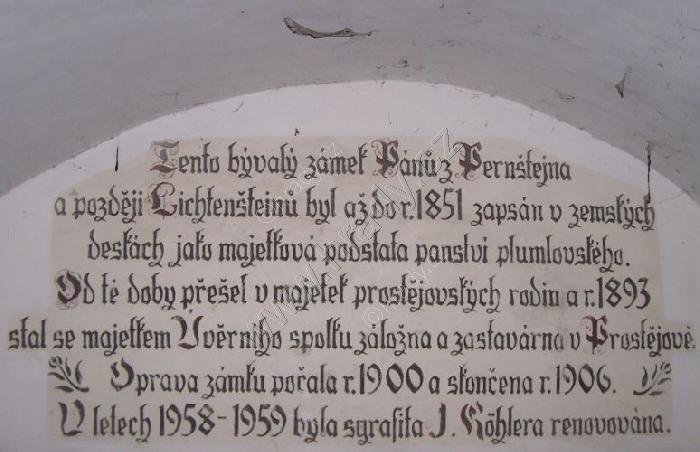 Tento bývalý zámek Pánů z Pernštejna
a později Lichtenšteinů byl až do r. 1851 zapsán v zemských
deskách jako majetková podstata panství plumlovského.
Od té doby přešel v majetek prostějovských rodin a r. 1893
stal se majetkem Úvěrního spolku záložna a zastavárna v Prostějově.
Oprava zámku počala r. 1900 a skončena r. 1906.
V letech 1958-1959 byla sgrafita J. Köhlera renovována.